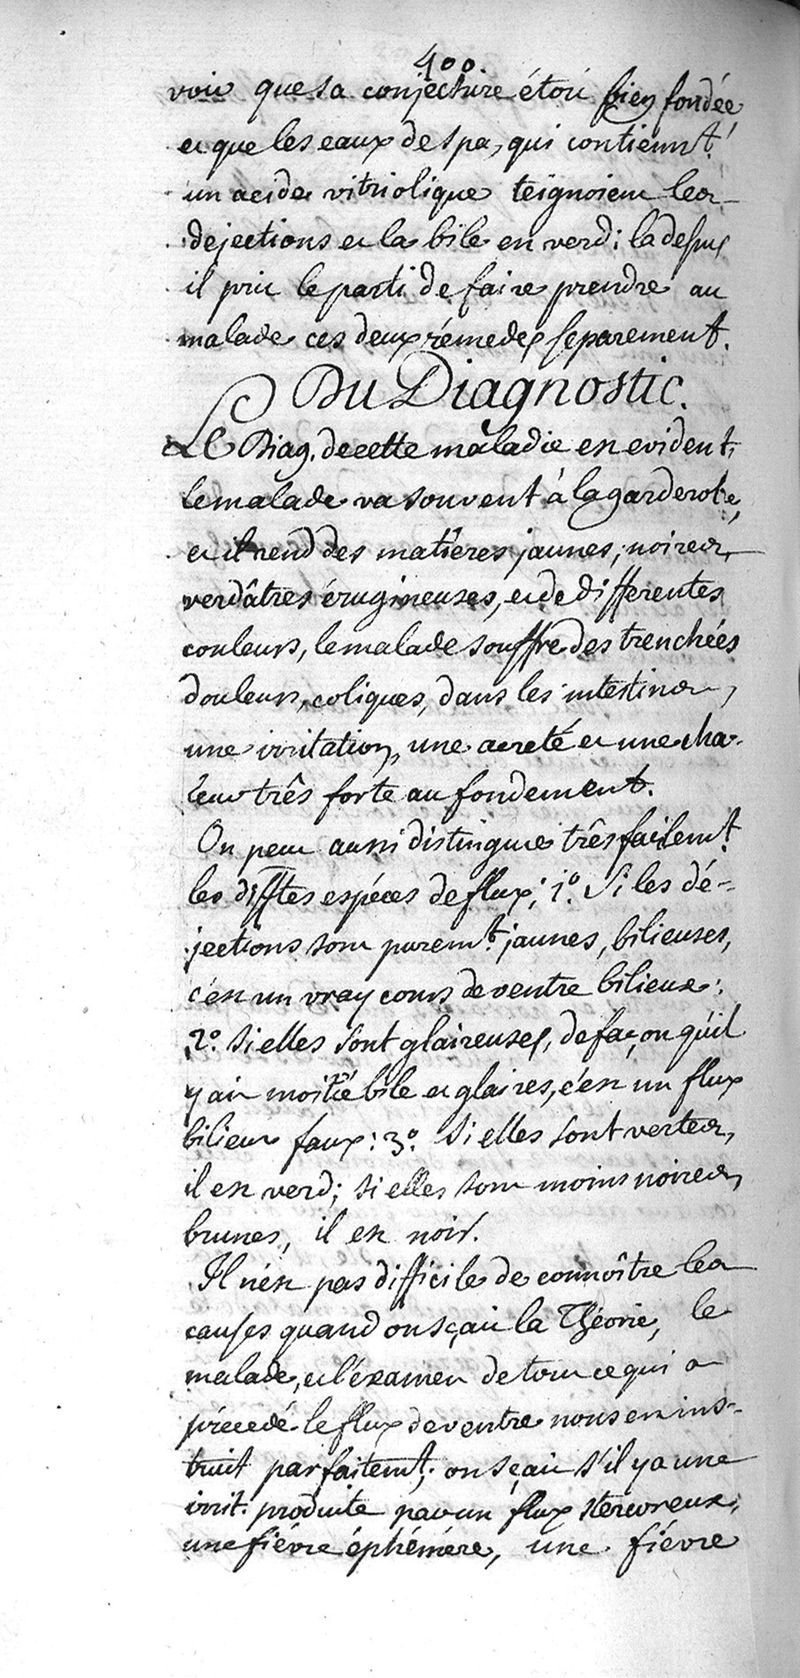 400.
voir que sa conjecture étoit bien fondée
et que les eaux de spa, qui contienn.t
un acide vitriolique teignoient les
dejections et la bile en verd; la dessus
il prit le parti de faire prendre au
malade ces deux rémedes separement.
Du Diagnostic.
Le Diag. de cette maladie est evident,
le malade va souvent à la garderobe,
et il rend des matiéres jaunes, noires,
verdâtres érugineuses, et de differentes
couleurs, le malade souffre des trenchées
douleurs, coliques, dans les intestins,
une irritation, une acreté et une cha-
leur três forte au fondement.
On peut aussi distinguer três facilem.t
les diff.tes espéces de flux; 1.o Si les dé-
jections sont purem.t jaunes, bilieuses,
c'est un vray cours de ventre bilieux;
2.o Si elles sont glaireuses, de façon qu'il
y ait moitié bile et glaires, c'est un flux
bilieux faux: 3.o Si elles sont vertes,
il est verd; si elles sont moins noires,
brunes, il est noir.
Il n'est pas difficile de connoître les
causes quand on sçait la Théorie, le
malade, et l'examen de tout ce qui a
précedé le flux de ventre nous en ins-
truit parfaitem.t; on sçait s'il y a une
irrit. produite par un flux stercoreux,
une fiévre éphémére, une fiévre